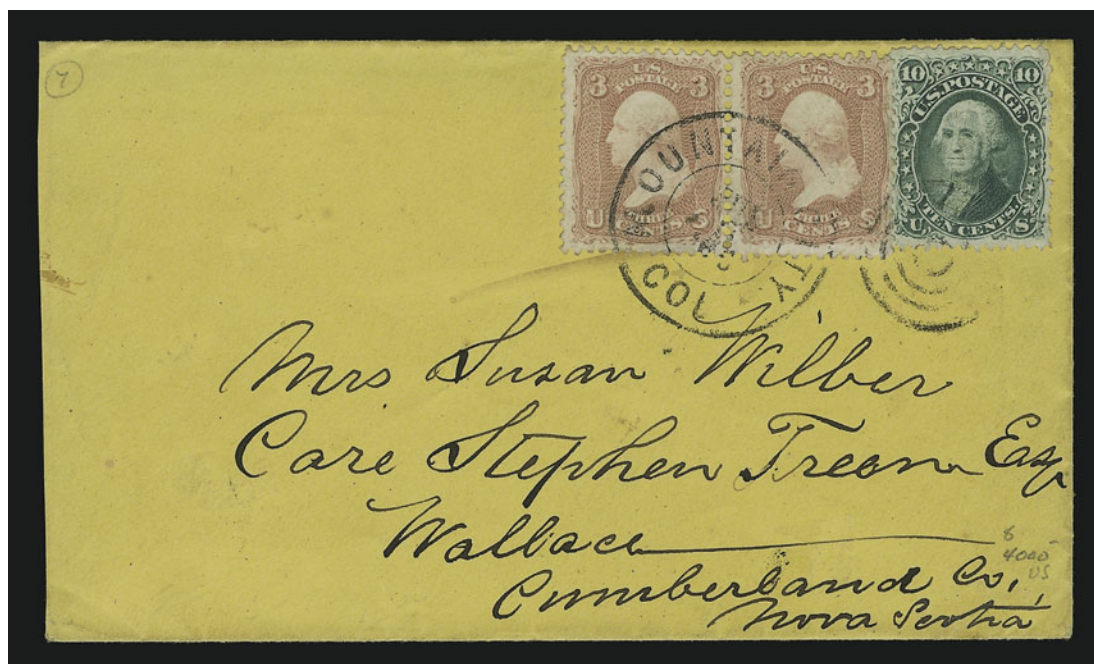 7
3 3
U.S.
POSTAGE
THREE
U CENTS S
3 3
U.S.
POSTAGE
THREE
U CENTS S
10 10
U.S. POSTAGE
TEN CENTS.
U. S.
MOUNTAIN CITY
COL
Mrs Susan Wilber
Care Stephen Treen Esq
Wallace
Cumberland Co,
Nova Scotia
8
4000-
US